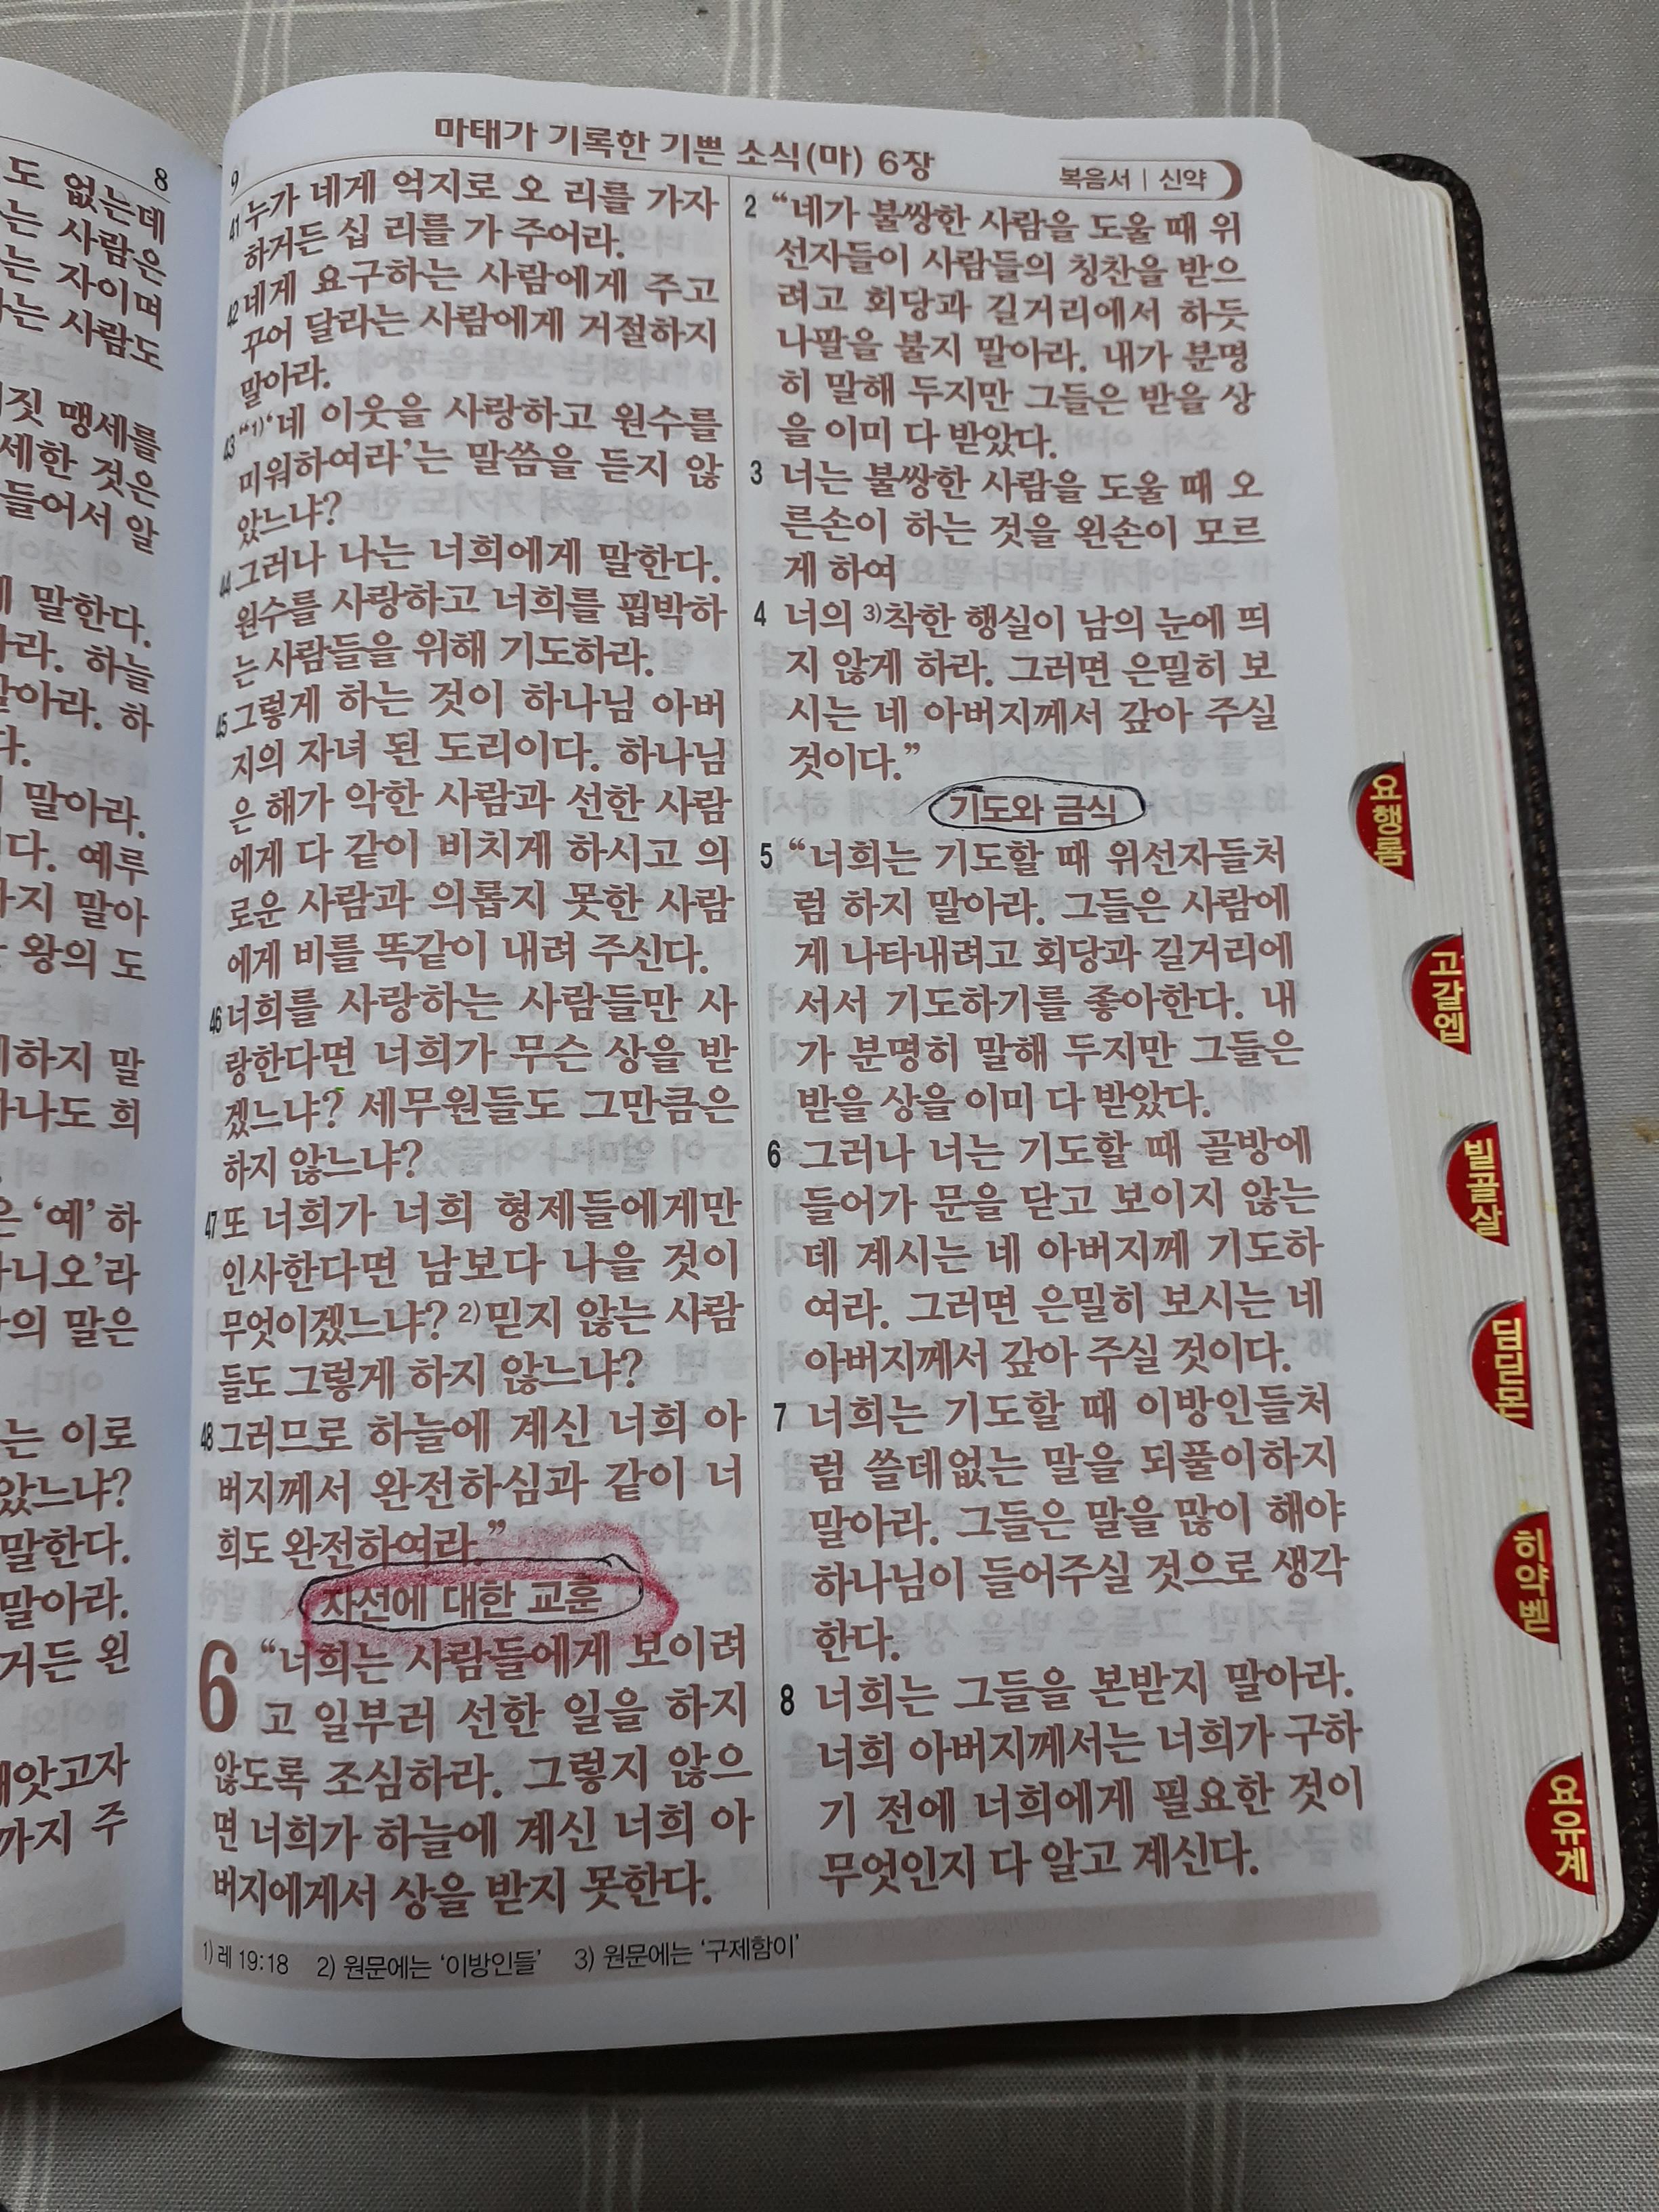 8
도 없는데
는 사람은
는 자이며
나는 사람도
짓 맹세를
세한 것은
들어서 알
말한다.
라. 하늘
말아라. 하
다.
말아라.
다. 예루
하지 말아
왕의 도
하지 말
하나도 희
은 ‘예’ 하
아니오’라
의 말은
는 이로
았느냐?
말한다.
말아라.
거든 왼
빼앗고자
까지 주
9
마태가 기록한 기쁜 소식(마) 6장
복음서 | 신약
41 누가 네게 억지로 오 리를 가자
하거든 십 리를 가 주어라.
42 네게 요구하는 사람에게 주고
꾸어 달라는 사람에게 거절하지
말아라.
43 “1)‘네 이웃을 사랑하고 원수를
미워하여라’는 말씀을 듣지 않
았느냐?
44 그러나 나는 너희에게 말한다.
원수를 사랑하고 너희를 핍박하
는 사람들을 위해 기도하라.
45 그렇게 하는 것이 하나님 아버
지의 자녀 된 도리이다. 하나님
은 해가 악한 사람과 선한 사람
에게 다 같이 비치게 하시고 의
로운 사람과 의롭지 못한 사람
에게 비를 똑같이 내려 주신다.
46 너희를 사랑하는 사람들만 사
랑한다면 너희가 무슨 상을 받
겠느냐? 세무원들도 그만큼은
하지 않느냐?
47 또 너희가 너희 형제들에게만
인사한다면 남보다 나을 것이
무엇이겠느냐? 2)믿지 않는 사람
들도 그렇게 하지 않느냐?
48 그러므로 하늘에 계신 너희 아
버지께서 완전하심과 같이 너
희도 완전하여라.”
자선에 대한 교훈
6 “너희는 사람들에게 보이려
고 일부러 선한 일을 하지
않도록 조심하라. 그렇지 않으
면 너희가 하늘에 계신 너희 아
버지에게서 상을 받지 못한다.
2 “네가 불쌍한 사람을 도울 때 위
선자들이 사람들의 칭찬을 받으
려고 회당과 길거리에서 하듯
나팔을 불지 말아라. 내가 분명
히 말해 두지만 그들은 받을 상
을 이미 다 받았다.
3 너는 불쌍한 사람을 도울 때 오
른손이 하는 것을 왼손이 모르
게 하여
4 너의 3)착한 행실이 남의 눈에 띄
지 않게 하라. 그러면 은밀히 보
시는 네 아버지께서 갚아 주실
것이다.”
기도와 금식
5 “너희는 기도할 때 위선자들처
럼 하지 말아라. 그들은 사람에
게 나타내려고 회당과 길거리에
서서 기도하기를 좋아한다. 내
가 분명히 말해 두지만 그들은
받을 상을 이미 다 받았다.
6 그러나 너는 기도할 때 골방에
들어가 문을 닫고 보이지 않는
데 계시는 네 아버지께 기도하
여라. 그러면 은밀히 보시는 네
아버지께서 갚아 주실 것이다.
7 너희는 기도할 때 이방인들처
럼 쓸데없는 말을 되풀이하지
말아라. 그들은 말을 많이 해야
하나님이 들어주실 것으로 생각
한다.
8 너희는 그들을 본받지 말아라.
너희 아버지께서는 너희가 구하
기 전에 너희에게 필요한 것이
무엇인지 다 알고 계신다.
1) 레 19:18 2) 원문에는 ‘이방인들’ 3) 원문에는 ‘구제함이’
요행롬
고갈엡
빌골살
딤딛몬
히약벧
요유계